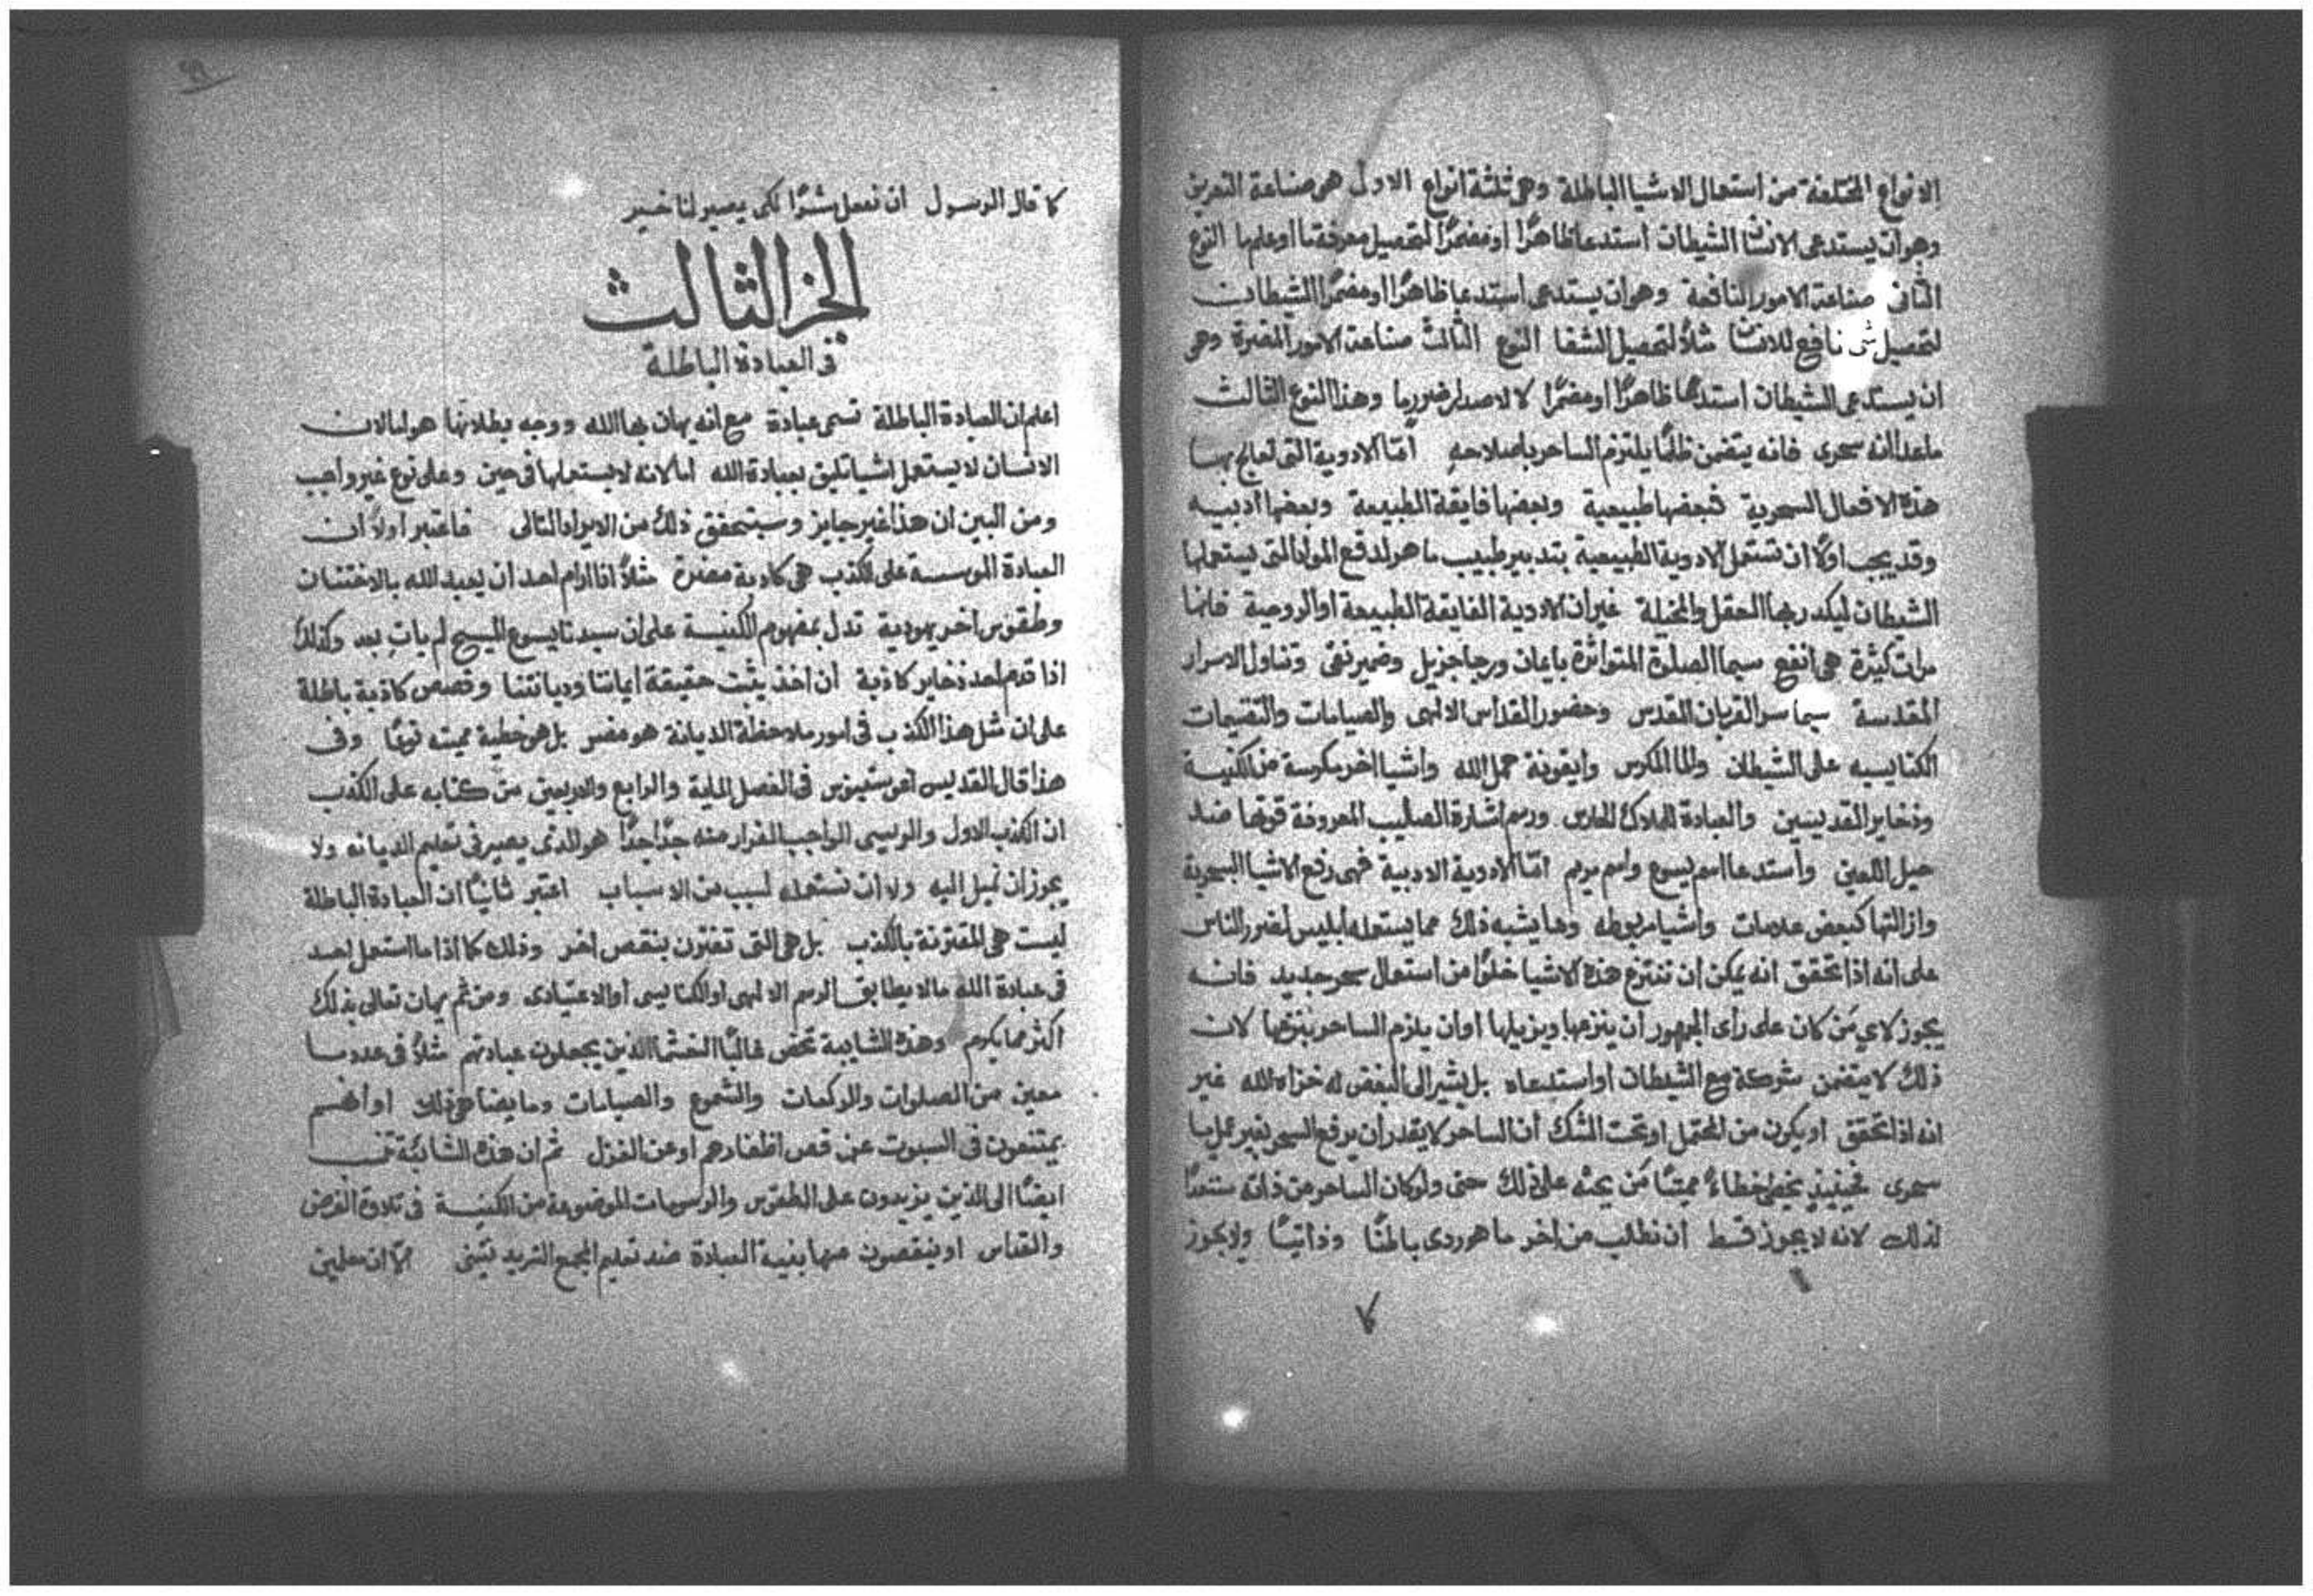 الانواع المختلفة من استعمال الاشيا الباطلة وهى ثلثة انواع الاول هو صناعة التعريف
وهو ان يستدعى الانسان الشيطان استدعا ظاهرًا او مضمرًا لتحصيل معرفة ما او علم ما النوع
الثانى صناعة الامور النافعة وهو ان يستدعى استدعا ظاهرًا او مضمرًا الشيطان
لتحصيل شى نافع للانسان مثلاً لتحصيل الشفا النوع الثالث صناعة الامور المضرة وهى
ان يستدعى الشيطان استدعا ظاهرًا او مضمرًا لاصدار ضرر ما وهذا النوع الثالث
ما عدا انه سحرى فانه يتضمن ظلمًا يلتزم الساحر باصلاحه امّا الادوية التى تعالج بها
هذه الافعال السحرية فبعضها طبيعية وبعضها فايقة الطبيعة وبعضها ادبيه
وقد يجب اولاً ان تستعمل الادوية الطبيعية بتدبير طبيب ماهر لدفع المواد التى يستعملها
الشيطان ليكدر بها العقل والمخيلة غير ان الادوية الفايقة الطبيعة او الروحية فانها
مرات كثيرة هى انفع سيما الصلوة المتواترة بايمان ورجا جزيل وضمير نقى وتناول الاسرار
المقدسة سيما سر القربان المقدس وحضور القداس الالهى والصيامات والتقسيمات
الكنايسيه على الشيطان والما المكرس وايقونة حمل الله واشيا اخر مكرسة من الكنيسة
وذخاير القديسين والعبادة للملاك الحارس ورسم اشارة الصليب المعروفة قوتها ضد
حيل اللعين واستدعا اسم يسوع واسم مريم امّا الادوية الادبية فهى رفع الاشيا السحرية
وازالتها كبعض علامات واشيا مربوطه وما يشبه ذلك مما يستعمله ابليس لضرر الناس
على انه اذا تحقق انه يمكن ان تنتزع هذه الاشيا خلوًا من استعمال سحر جديد فانه
يجوز لاي مَن كان على رأى الجمهور ان ينزعها ويزيلها او ان يلزم الساحر بنزعها لان
ذلك لا يتضمن شركة مع الشيطان او استدعاه بل يشير الى البغض له خزاه الله غير
انه اذا تحقق او يكون من المحتمل او تحت الشك أن الساحر لا يقدر أن يرفع السحر بغير عمل ما
سحرى فحينيذٍ يخطى خطاءً مميتًا مَن يحثه على ذلك حتى ولو كان الساحر من ذاته مستعدًا
لذلك لانه لا يجوز قط ان نطلب من اخر ما هو ردى باطنًا وذاتيًا ولا يجوز
كما قال الرسول ان نفعل شرًا لكى يصير لنا خير
الجز الثالث
فى العبادة الباطلة
اعلم ان العبادة الباطلة تسمى عبادة مع انه يهان بها الله ووجه بطلانها هو اما لان
الانسان لا يستعمل اشيا تليق بعبادة الله اما لانه لا يستعملها فى حين وعلى نوع غير واجب
ومن البين ان هذا غير جايز وسيتحقق ذلك من الايراد التالى فاعتبر اولاً ان
العبادة الموسسة على الكذب هى كاذبة مضرة مثلاً اذا رام احد ان يعبد الله بالاختتان
وطقوس اخر يهودية تدل بمفهوم الكنيسة على ان سيدنا يسوع المسيح لم يات بعد وكذلك
اذا قدم احد ذخاير كاذبة او اخذ يثبت حقيقة ايماننا وديانتنا وقصص كاذبة باطلة
على ان مثل هذا الكذب فى امور ملاحظة الديانة هو مضر بل هو خطية مميته نوعًا وفى
هذا قال القديس اغوستينوس فى الفصل الماية والرابع والاربعين من كتابه على الكذب
ان الكذب الاول والرئيسى الواجب الفرار منه جدًا جدًا هو الذى يصير فى تعليم الديانه ولا
يجوز ان نميل اليه ولا ان نستعمله لسبب من الاسباب اعتبر ثانيًا ان العبادة الباطلة
ليست هى المقترنة بالكذب بل هى التى تقترن بنقص اخر وذلك كما اذا ما استعمل احد
فى عبادة الله ما لا يطابق الرسم الالهى او الكنايسى او الاعتيادى ومن ثم يهان تعالى بذلك
اكثر مما يكرم وهذه الشايبة تخص غالبًا الذين يجعلون عبادتهم مثلاً فى عدد ما
معين من الصلوات والركعات والشموع والصيامات وما يضاهى ذلك او انهم
يمتنعون فى السبوت عن قص اظفارهم او عن الغزل ثم ان هذه الشائبة تخص
ايضًا الى الذين يزيدون على الطقوس والرسومات الموضوعة من الكنيسة فى تلاوة الفرض
والقداس او ينقصون عنها بنية العبادة ضد تعليم المجمع التريدنتينى امّا ان معلمين